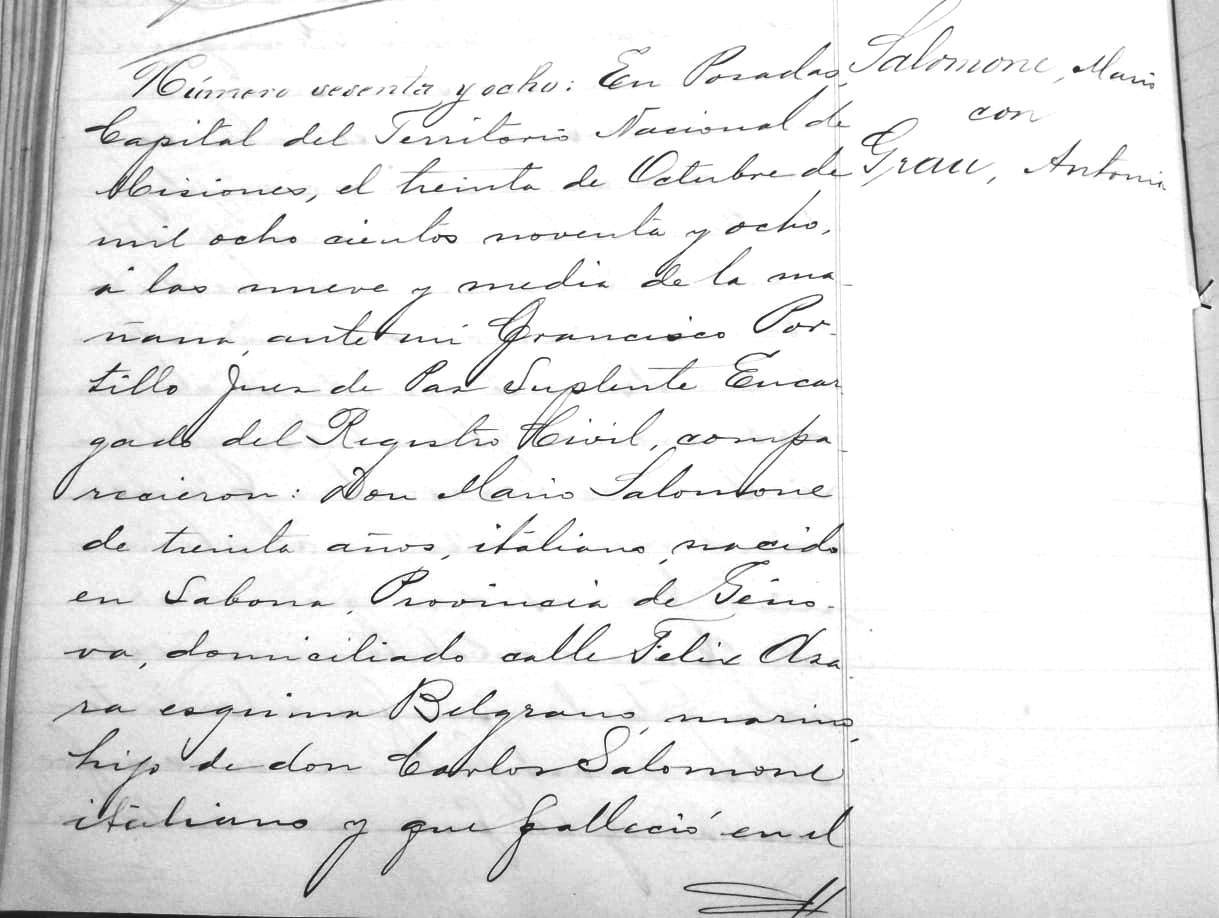 Número sesenta y ocho: En Posadas,
Capital del Territorio Nacional de
Misiones, el treinta de Octubre de
mil ocho cientos noventa y ocho,
á las nueve y media de la ma-
ñana, ante mí Francisco Por-
tillo Juez de Paz Suplente Encar
gado del Registro Civil, compa-
recieron: Don Mario Salomone
de treinta años, italiano, nacido
en Sabona, Provincia de Géno-
va, domiciliado calle Felix Aza
ra esquina Belgrano, marino,
hijo de don Carlos Salomone
italiano y que falleció en el
Salomone, Mario
con
Grau, Antonia